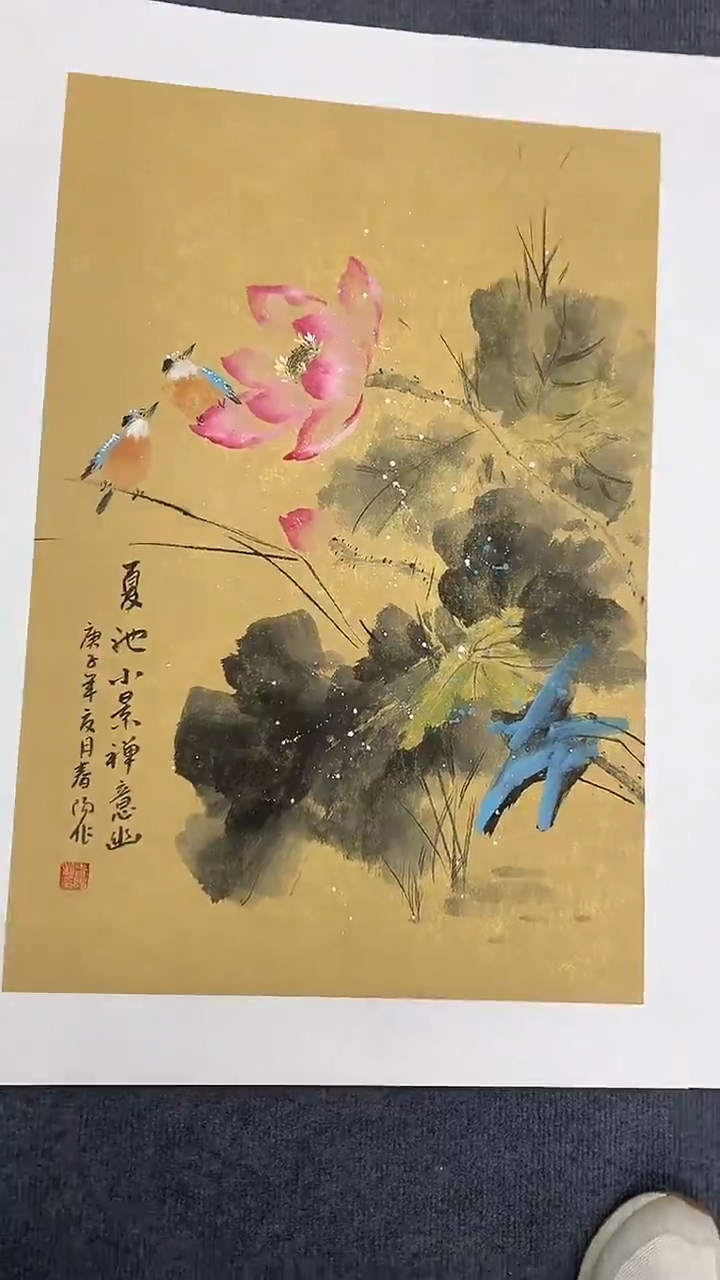 夏池小景禅意幽
庚子年亥月春阳作